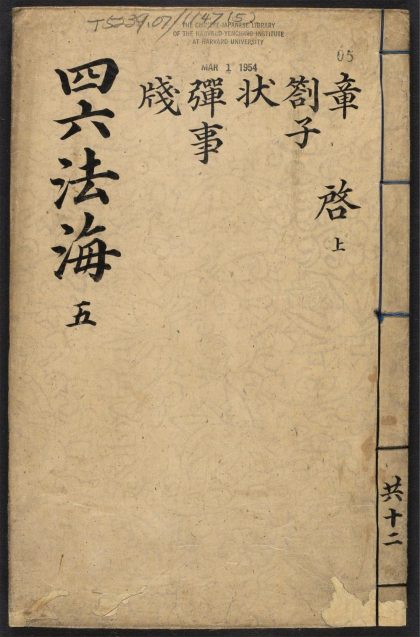 T5239.07/1147(5)
THE CHINESE-JAPANESE LIBRARY
OF THE HARVARD-YENCHING INSTITUTE
AT HARVARD UNIVERSITY
MAR 1 1954
05
章 啓上
劄子
状
彈事
牋
四六法海 五
共十二